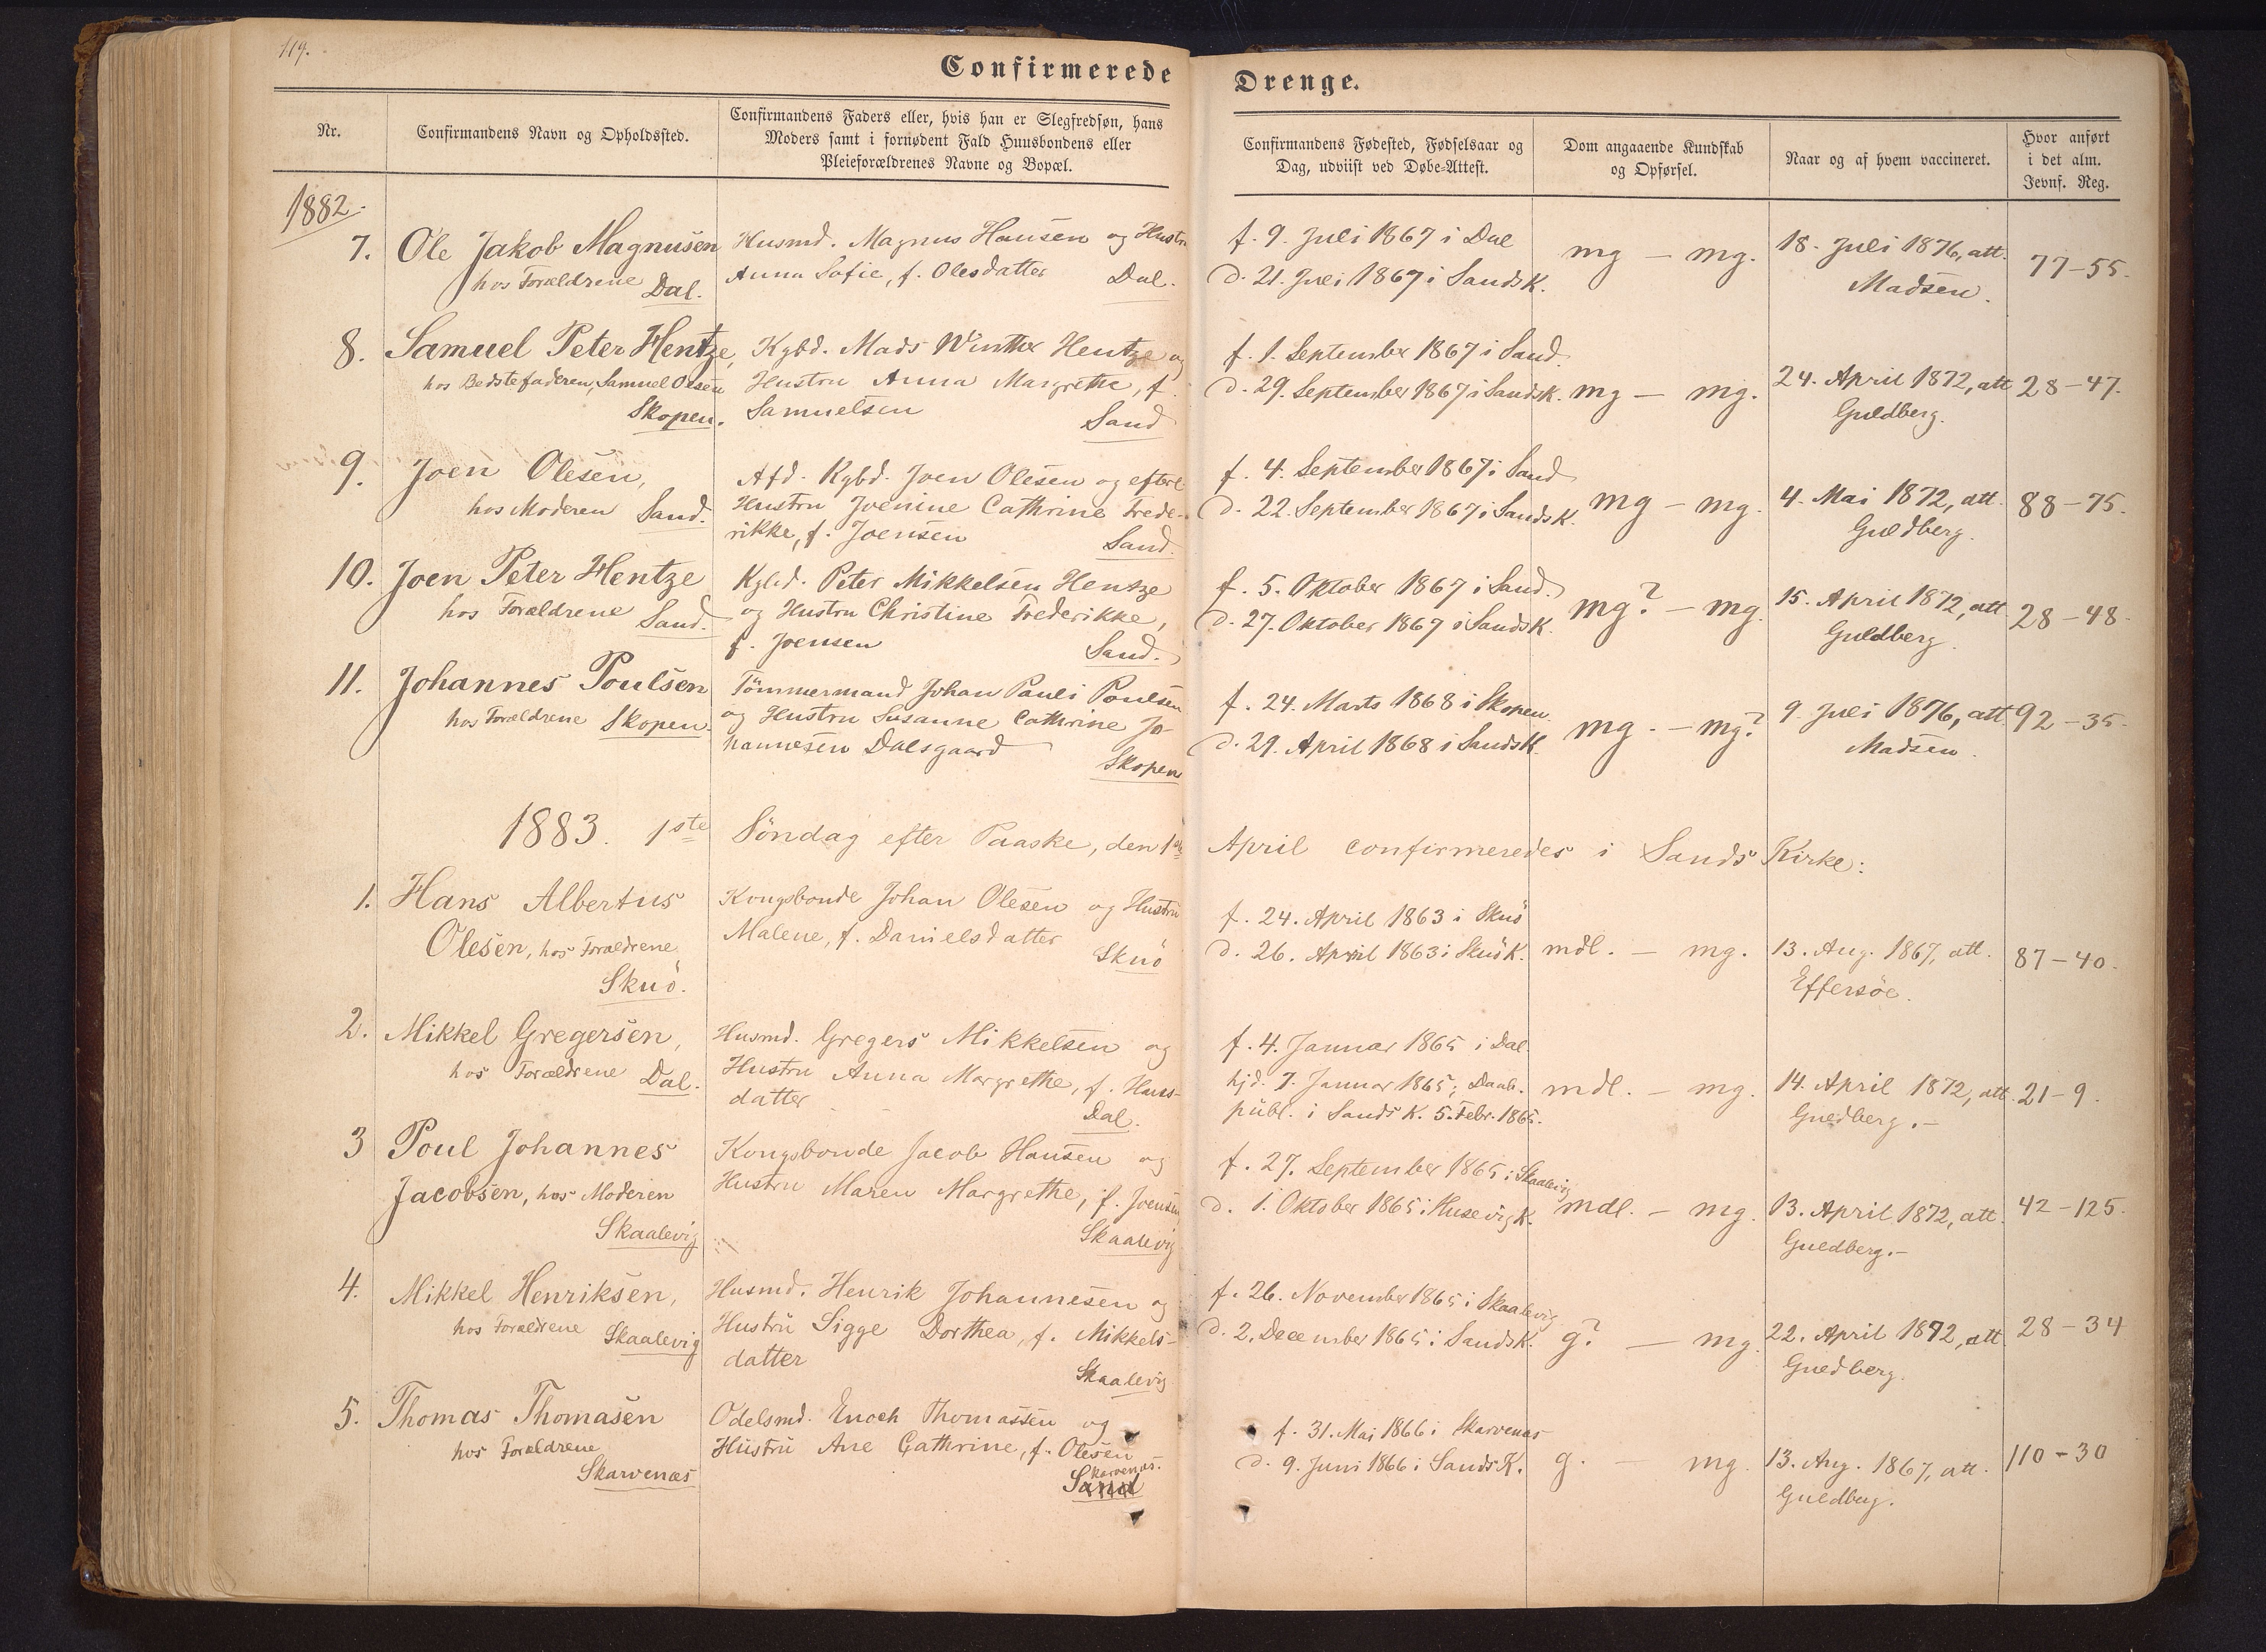 119.
Confirmerede Drenge.
Nr.
Confirmandens Navn og Opholdssted.
Confirmandens Faders eller, hvis han er Slegfredsøn, hans
Moders samt i fornødent Fald Huusbondens eller
Pleieforældrenes Navne og Bopæl.
Confirmandens Fødested, Fødselsaar og
Dag, udviist ved Døbe-Attest.
Dom angaaende Kundskab
og Opførsel.
Naar og af hvem vaccineret.
Hvor anført
i det alm.
Jevnf. Reg.
1882.
7.
Ole Jakob Magnusen
hos Forældrene Dal.
Husmd. Magnus Hansen og Hustru
Anna Sofie, f. Olesdatter
Dal.
f. 9. Juli 1867 i Dal
d. 21. Juli 1867 i Sands K.
mg — mg.
18. Juli 1876, att.
Madsen.
77-55.
8.
Samuel Peter Hentze,
hos Bedstefaderen, Samuel Olsen
Skopen.
Kgbd. Mads Winther Hentze og
Hustru Anna Margrethe, f.
Samuelsen
Sand
f. 1. September 1867 i Sand
d. 29. September 1867 i Sands K.
mg — mg.
24. April 1872, att
Guldberg.
28-47.
9.
Joen Olesen,
hos Moderen Sand.
Afd. Kgbd. Joen Olesen og efterl
Hustru Joenine Cathrine Frede-
rikke, f. Joensen
Sand.
f. 4. September 1867 i Sand
d. 22. September 1867 i Sands K.
mg — mg.
4. Mai 1872, att.
Guldberg.
88-75.
10.
Joen Peter Hentze
hos Forældrene Sand.
Kgbd. Peter Mikkelsen Hentze
og Hustru Christine Frederikke,
f. Joensen
Sand.
f. 5. Oktober 1867 i Sand.
d. 27. Oktober 1867 i Sands K.
mg? — mg.
15. April 1872, att
Guldberg.
28-48.
11.
Johannes Poulsen
hos Forældrene Skopen.
Tömmermand Johan Pauli Poulsen
og Hustru Susanne Cathrine Jo-
hannesen Dalsgaard
Skopen
f. 24. Marts 1868 i Skopen.
d. 29. April 1868 i Sands K.
mg. — mg?
9. Juli 1876, att.
Madsen.
92-35.
1883. 1ste Söndag efter Paaske, den 1ste April confirmeredes i Sands Kirke:
1.
Hans Albertus
Olesen, hos Forældrene
Skuö.
Kongsbonde Johan Olesen og Hustru
Malene, f. Danielsdatter
Skuö
f. 24. April 1863 i Skuö
d. 26. April 1863 i Skuö K.
mdl. — mg.
13. Aug. 1867, att.
Effersöe.
87-40.
2.
Mikkel Gregersen,
hos Forældrene Dal.
Husmd. Gregers Mikkelsen og
Hustru Anna Margrethe, f. Hans-
datter
Dal.
f. 4. Januar 1865 i Dal.
hjd. 7. Januar 1865; Daab.
publ. i Sands K. 5. Febr. 1865.
mdl. — mg.
14. April 1872, att.
Guldberg.-
21-9.
3
Poul Johannes
Jacobsen, hos Moderen
Skaalevig
Kongsbonde Jacob Hansen og
Hustru Maren Margrethe, f. Joensen
Skaalevig
f. 27. September 1865 i Skaalevig
d. 1. Oktober 1865 i Husevig K.
mdl. — mg.
13. April 1872, att.
Guldberg.-
42-125.
4.
Mikkel Henriksen,
hos Forældrene Skaalevig
Husmd. Henrik Johannesen og
Hustru Sigge Dorthea, f. Mikkels-
datter
Skaalevig
f. 26. November 1865 i Skaalevig
d. 2. December 1865 i Sands K.
g? — mg.
22. April 1872, att
Guldberg.
28-34
5.
Thomas Thomasen
hos Forældrene
Skarvenæs
Odelsmd. Enoch Thomassen og
Hustru Ane Cathrine, f. Olesen
Skarvenæs.
Sand
f. 31. Mai 1866 i Skarvenæs
d. 9. Juni 1866 i Sands K.
g. — mg.
13. Aug. 1867, att.
Guldberg.
110-30